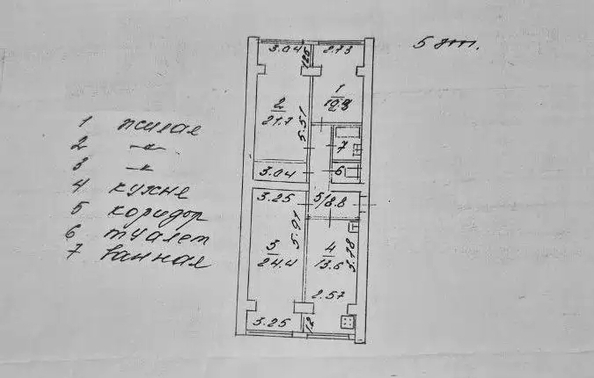 5 эт.
1 жилая
2 —"—
3 —"—
4 кухне
5 коридор
6 туалет
7 ванная
3.04
2.73
1
10.9
2
21.7
5.51
7
6
3.04
3.25
5/8.8
5.97
3
24.4
4
13.6
5.18
2.57
3.25
1.2